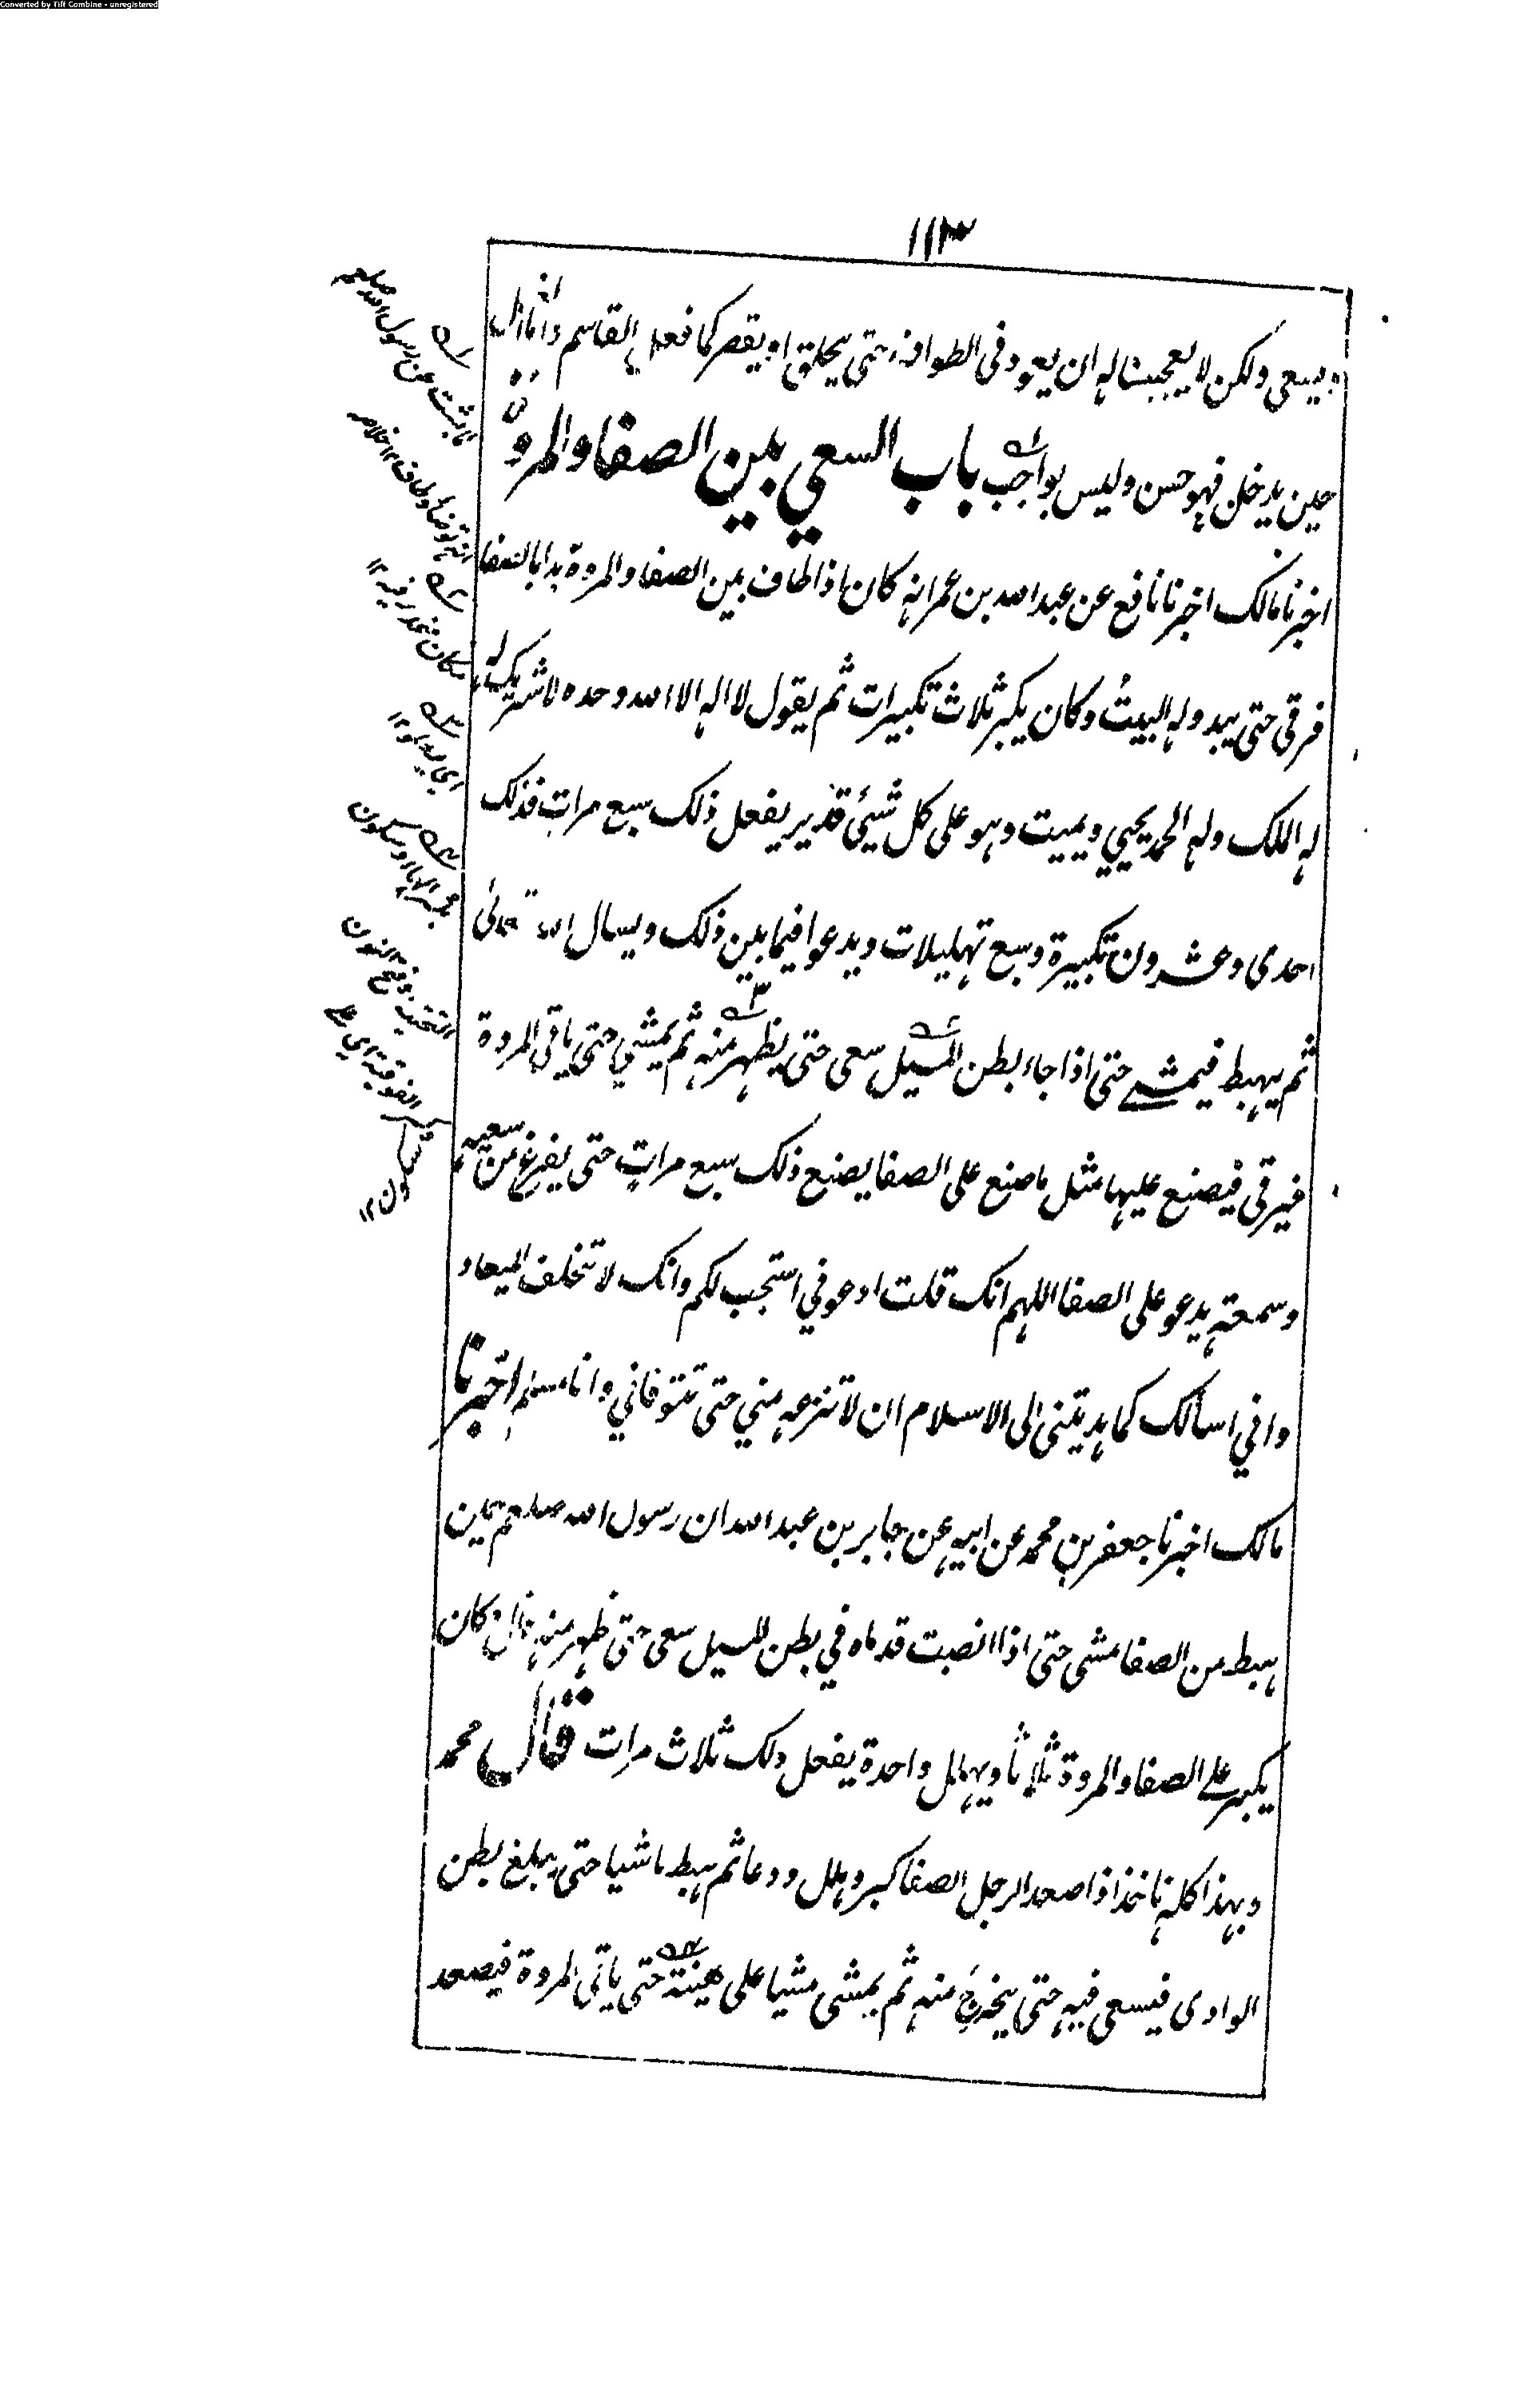 Converted by Tiff Combine - unregistered
١١٣
ويسعى ولكن لا يعجبنا له ان يعود فى الطواف حتى يحلق او يقصر كما فعل القاسم
حين يدخل فهو حسن وليس بواجب باب السعي بين الصفا والمروة
اخبرنا مالك اخبرنا نافع عن عبد الله بن عمر انه كان اذا طاف بين الصفا والمروة بدا بالصفا
فرقى حتى يبدو له البيت وكان يكبر ثلاث تكبيرات ثم يقول لا اله الا الله وحده لا شريك له
له الملك وله الحمد يحيي ويميت وهو على كل شيئ قدير يفعل ذلك سبع مرات فذلك
احدى وعشرون تكبيرة وسبع تهليلات ويدعوا فيما بين ذلك ويسال الله تعالى
ثم يهبط فيمشي حتى اذا جاء بطن المسيل سعى حتى يظهر منه ثم يمشي حتى ياتى المروة
فيرقى فيصنع عليها مثل ما صنع على الصفا يصنع ذلك سبع مرات حتى يفرغ من سعيه
وسمعته يدعو على الصفا اللهم انك قلت ادعوني استجب لكم وانك لا تخلف الميعاد
واني اسألك كما هديتنى الى الاسلام ان لا تنزعه مني حتى تتوفاني وانا مسلم اخبرنا
مالك اخبرنا جعفر بن محمد عن ابيه عن جابر بن عبد الله ان رسول الله صلعم حين
هبط من الصفا مشى حتى اذا انصبت قدماه في بطن المسيل سعى حتى ظهر منه قال وكان
يكبر على الصفا والمروة ثلاثا ويهلل واحدة يفعل ذلك ثلاث مرات قال محمد
وبهذا كله ناخذ اذا صعد الرجل الصفا كبر وهلل ودعا ثم هبط ماشيا حتى يبلغ بطن
الوادى فيسعى فيه حتى يخرج منه ثم يمشى مشيا على هينته حتى ياتى المروة فيصعد
ثابت عن رسول الله صلعم
انه توضأ وطاف ١٢
مكان منحدر فيه ١٢
اي يعلو ١٢
بكسر الهاء وسكون
التحتية وفتح النون
الفوقية اي على
سكون ١٢